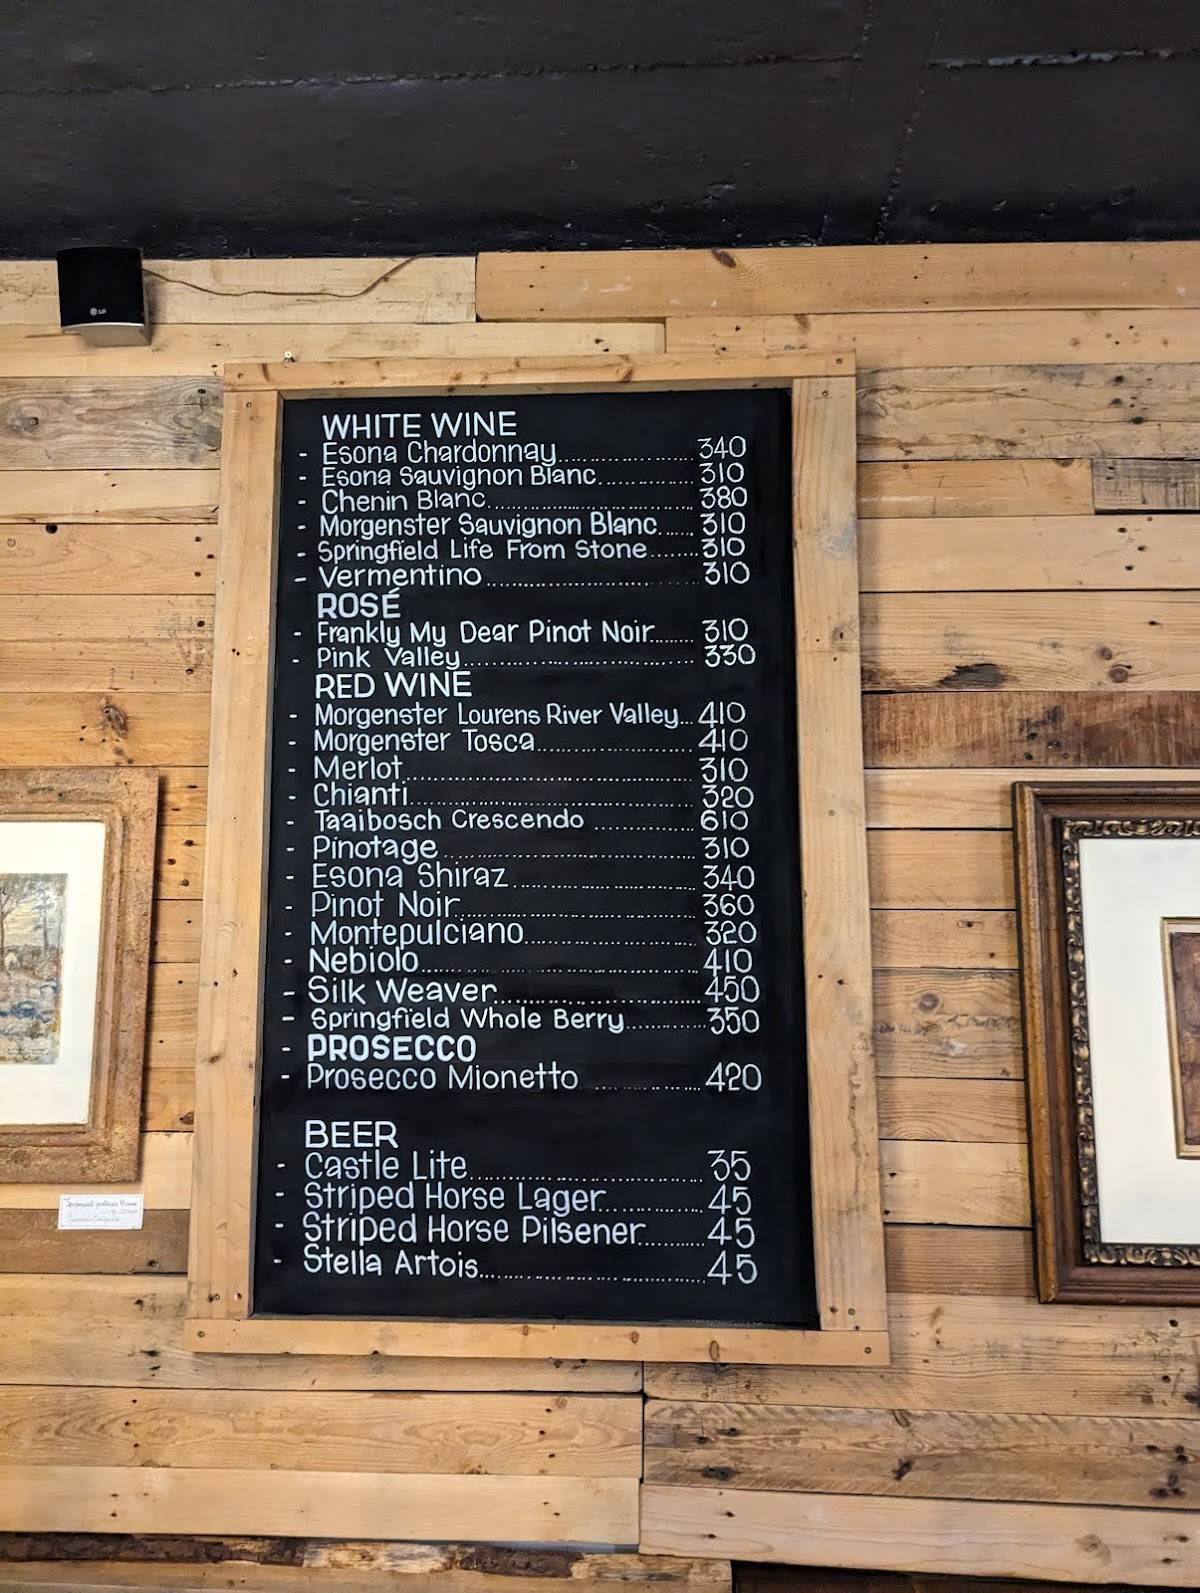 LG
WHITE WINE
- Esona Chardonnay........................340
- Esona Sauvignon Blanc................310
- Chenin Blanc..................................380
- Morgenster Sauvignon Blanc......310
- Springfield Life From Stone........310
- Vermentino...................................310
ROSÉ
- Frankly My Dear Pinot Noir........310
- Pink Valley.....................................330
RED WINE
- Morgenster Lourens River Valley...410
- Morgenster Tosca..........................410
- Merlot.............................................310
- Chianti............................................320
- Taaibosch Crescendo ................610
- Pinotage.........................................310
- Esona Shiraz..................................340
- Pinot Noir.......................................360
- Montepulciano..............................320
- Nebiolo...........................................410
- Silk Weaver....................................450
- Springfield Whole Berry..............350
- PROSECCO
- Prosecco Mionetto ..................420
BEER
- Castle Lite.....................................35
- Striped Horse Lager....................45
- Striped Horse Pilsener................45
- Stella Artois...................................45